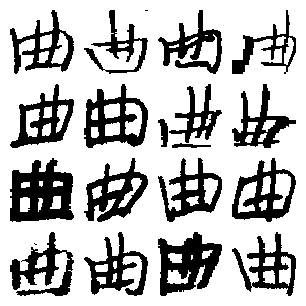 曲曲曲曲
曲曲曲曲
曲曲曲曲
曲曲曲曲